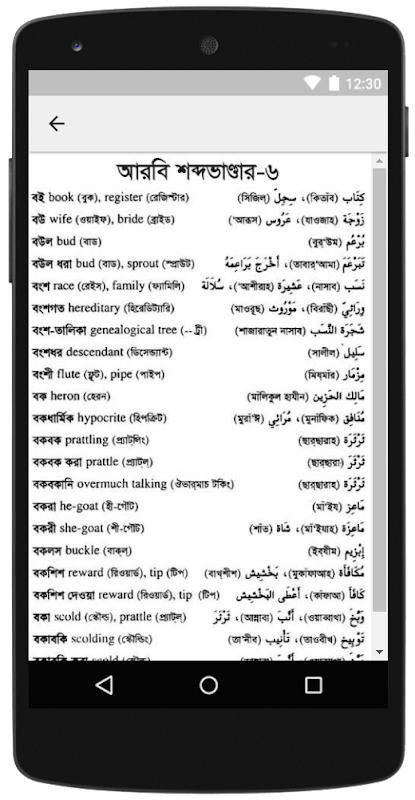 12:30
আরবি শব্দভাণ্ডার-৬
বই book (বুক), register (রেজিস্টার) كِتَاب (কিতাব), سِجِلّ (সিজিল)
বউ wife (ওয়াইফ), bride (ব্রাইড) زَوْجَة (যাওজাহ), عَرُوس ('আরূস)
বউল bud (বাড) بُرْعُم (বুর্'উম)
বউল ধরা bud (বাড), sprout (স্প্রাউট) تَبَرْعَمَ (তাবার্'আমা), أَخْرَجَ بَرَاعِمَهُ
বংশ race (রেইস), family (ফ্যামিলি) نَسَب (নাসাব), عَشِيرَة ('আশীরাহ), سُلَالَة
বংশগত hereditary (হিরেডিট্যারি) وِرَاثِيّ (বিরাছী), مَوْرُوث (মাওরূছ)
বংশ-তালিকা genealogical tree (--ট্রী) شَجَرَة النَّسَب (শাজারাতুন নাসাব)
বংশধর descendant (ডিসেন্ড্যান্ট) سَلِيل (সালীল)
বংশী flute (ফ্লুট), pipe (পাইপ) مِزْمَار (মিয্মার)
বক heron (হেরন) مَالِك الحَزِين (মালিকুল হাযীন)
বকধার্মিক hypocrite (হিপক্রিট) مُنَافِق (মুনাফিক), مُرَائِي (মুরা'ঈ)
বকবক prattling (প্র্যাট্লিং) ثَرْثَرَة (ছার্ছারাহ)
বকবক করা prattle (প্র্যাট্ল্) ثَرْثَرَ (ছার্ছারা)
বকবকানি overmuch talking (ঔভার্মাচ টকিং) ثَرْثَرَة (ছার্ছারাহ)
বকরা he-goat (হী-গৌট) مَاعِز (মা'ইয)
বকরী she-goat (শী-গৌট) مَاعِزَة (মা'ইযাহ), شَاة (শাত)
বকলস buckle (বাক্ল্) إِبْزِيم (ইব্যীম)
বকশিশ reward (রিওয়ার্ড), tip (টিপ) مُكَافَأَة (মুকাফাআহ), بَخْشِيش (বাখ্শীশ)
বকশিশ দেওয়া reward (রিওয়ার্ড), tip (টিপ) كَافَأَ (কাফাআ), أَعْطَى البَخْشِيش
বকা scold (স্কৌল্ড), prattle (প্র্যাট্ল্) وَبَّخَ (ওয়াব্বাখা), أَنَّبَ (আন্নাবা), ثَرْثَرَ
বকাবকি scolding (স্কৌল্ডিং) تَوْبِيخ (তাওবীখ), تَأْنِيب (তা'নীব)